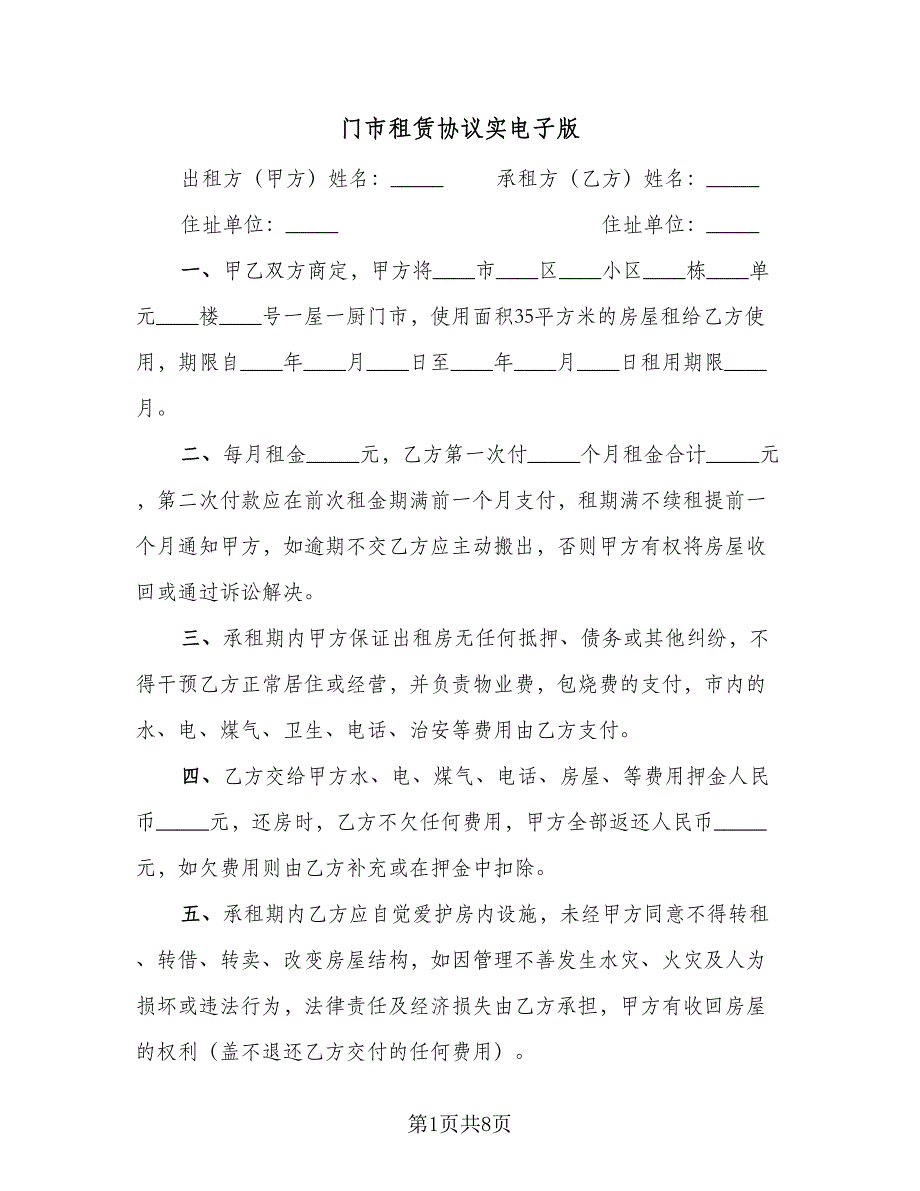 门市租赁协议实电子版
出租方（甲方）姓名：_____ 承租方（乙方）姓名：_____
住址单位：_____ 住址单位：_____
一、甲乙双方商定，甲方将____市____区____小区____栋____单
元____楼____号一屋一厨门市，使用面积35平方米的房屋租给乙方使
用，期限自____年____月____日至____年____月____日租用期限____
月。
二、每月租金_____元，乙方第一次付_____个月租金合计_____元
，第二次付款应在前次租金期满前一个月支付，租期满不续租提前一
个月通知甲方，如逾期不交乙方应主动搬出，否则甲方有权将房屋收
回或通过诉讼解决。
三、承租期内甲方保证出租房无任何抵押、债务或其他纠纷，不
得干预乙方正常居住或经营，并负责物业费，包烧费的支付，市内的
水、电、煤气、卫生、电话、治安等费用由乙方支付。
四、乙方交给甲方水、电、煤气、电话、房屋、等费用押金人民
币_____元，还房时，乙方不欠任何费用，甲方全部返还人民币_____
元，如欠费用则由乙方补充或在押金中扣除。
五、承租期内乙方应自觉爱护房内设施，未经甲方同意不得转租
、转借、转卖、改变房屋结构，如因管理不善发生水灾、火灾及人为
损坏或违法行为，法律责任及经济损失由乙方承担，甲方有收回房屋
的权利（盖不退还乙方交付的任何费用）。
第1页共8页